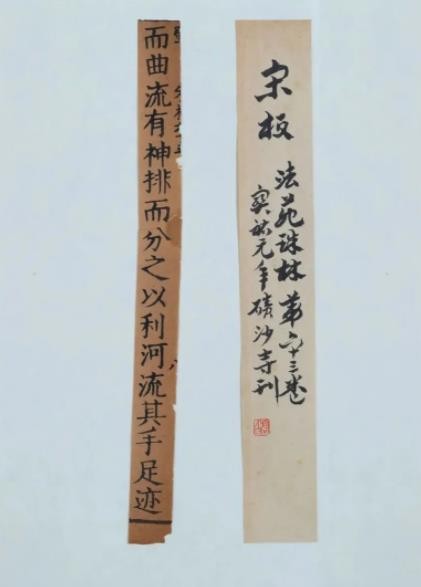 宋板
法苑珠林第六十三卷
寳祐元年磧沙寺刊
而曲流有神排而分之以利河流其手足迹